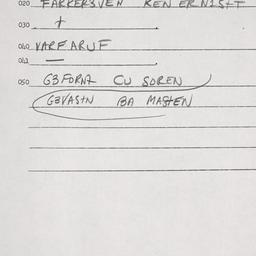 020 FARRERSVEN KEN ERNISTT
030 +
040 VARFARUF
041 —
050 GBFORNA CU SOREN
GBVASTN BA MASTEN